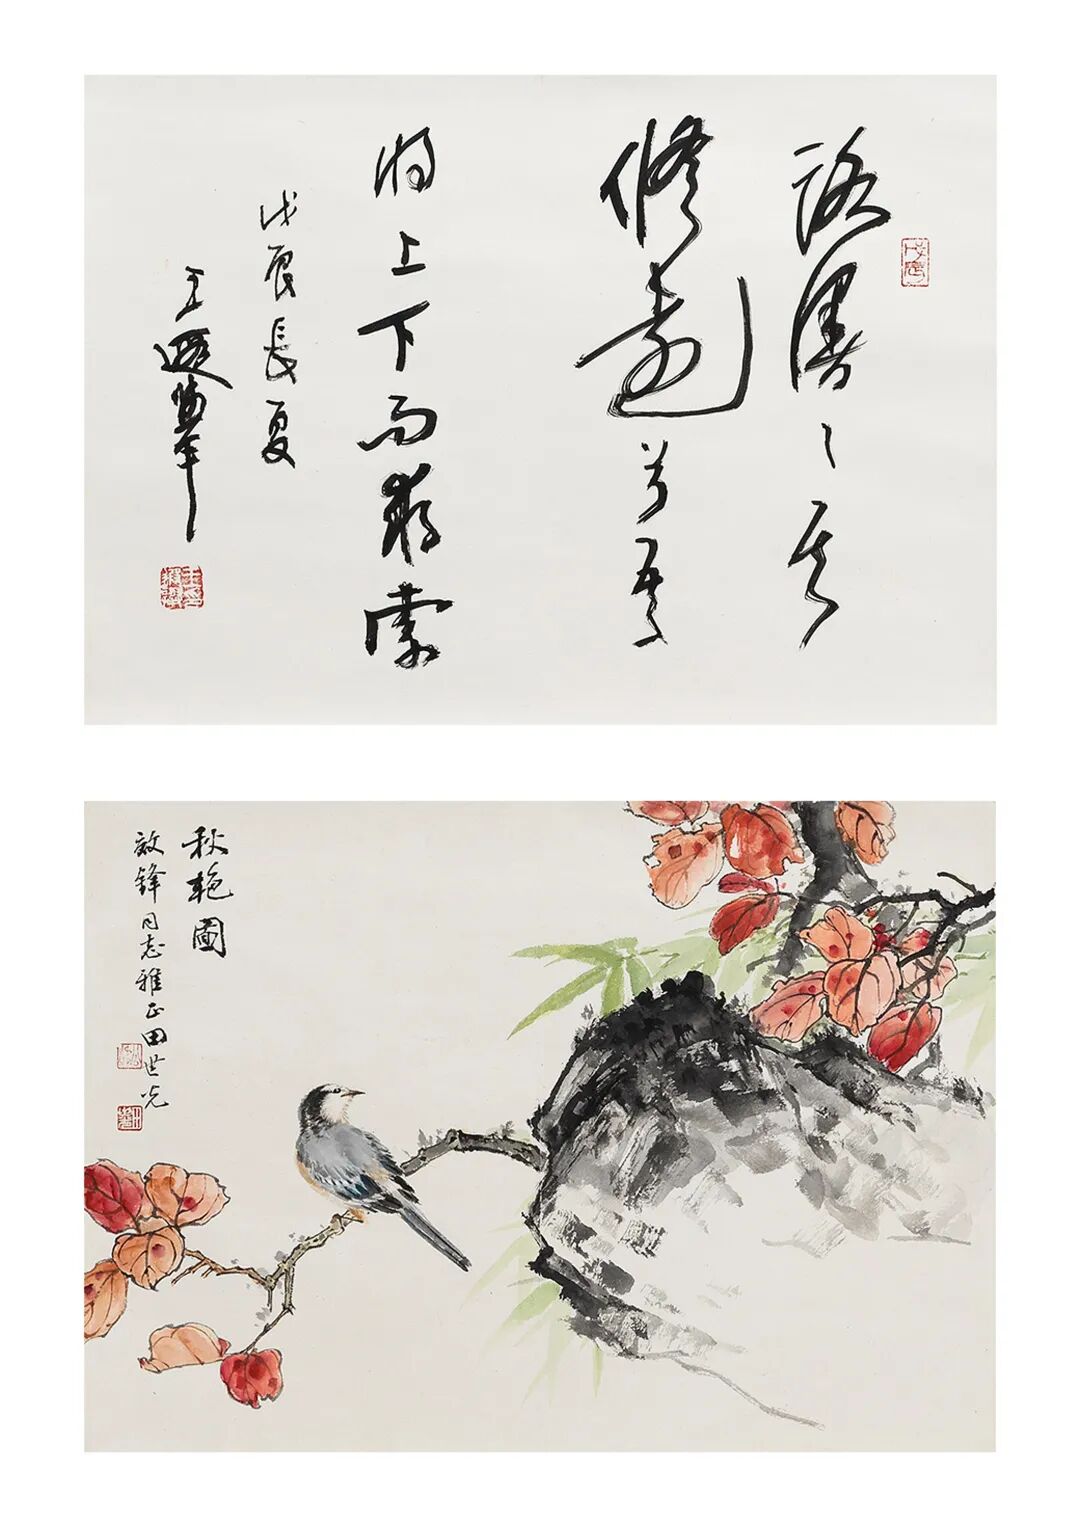 路漫〻其
修遠兮吾
将上下而求索
戊辰長夏
王遐舉
戊辰
秋艳圖
效鋒同志雅正田世光